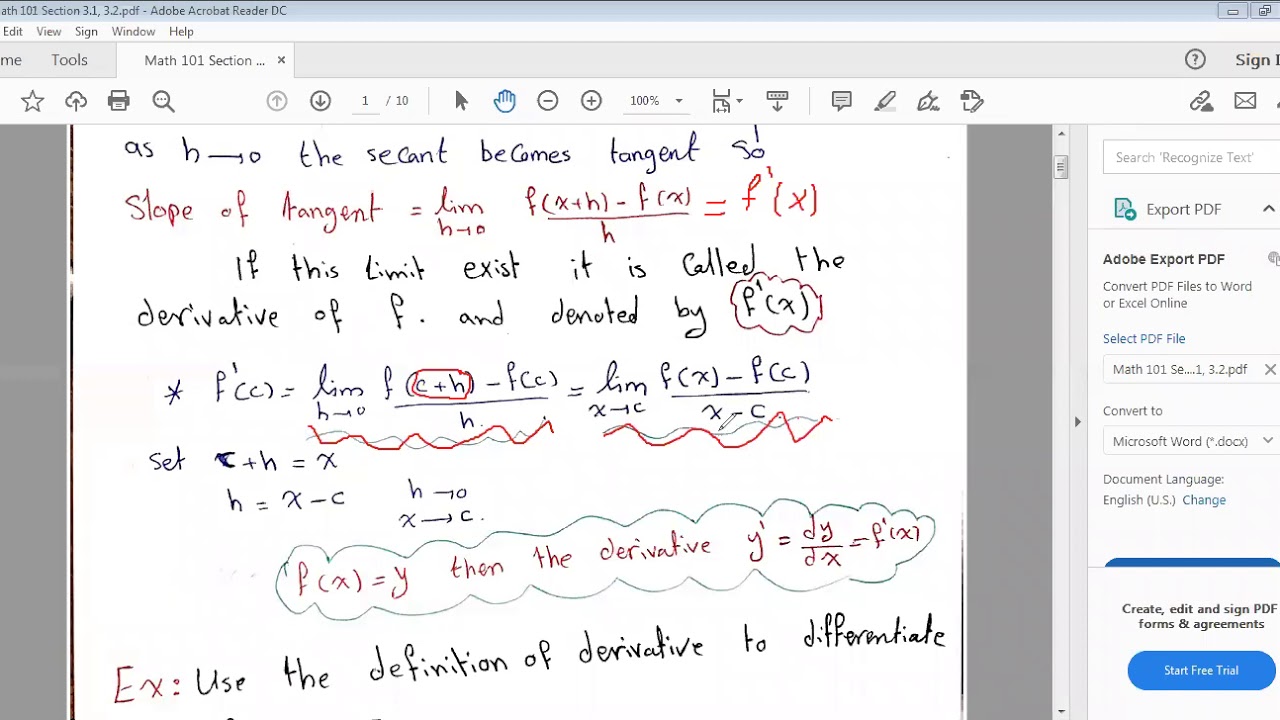 ath 101 Section 3.1, 3.2.pdf - Adobe Acrobat Reader DC
Edit View Sign Window Help
me Tools Math 101 Section ... × Sign I
1 / 10 100%
as h→0 the secant becomes tangent so
Slope of tangent = lim h→0 f(x+h) - f(x) / h = f'(x)
If this limit exist it is called the
derivative of f. and denoted by f'(x)
* f'(c) = lim h→0 f(c+h) - f(c) / h. = lim x→c f(x) - f(c) / x - c
set c+h = x
h = x-c h→0
x→c.
f(x) = y then the derivative y' = dy/dx = f'(x)
Ex: Use the definition of derivative to differentiate
Search 'Recognize Text'
Export PDF
Adobe Export PDF
Convert PDF Files to Word
or Excel Online
Select PDF File
Math 101 Se....1, 3.2.pdf ×
Convert to
Microsoft Word (*.docx)
Document Language:
English (U.S.) Change
Create, edit and sign PDF
forms & agreements
Start Free Trial